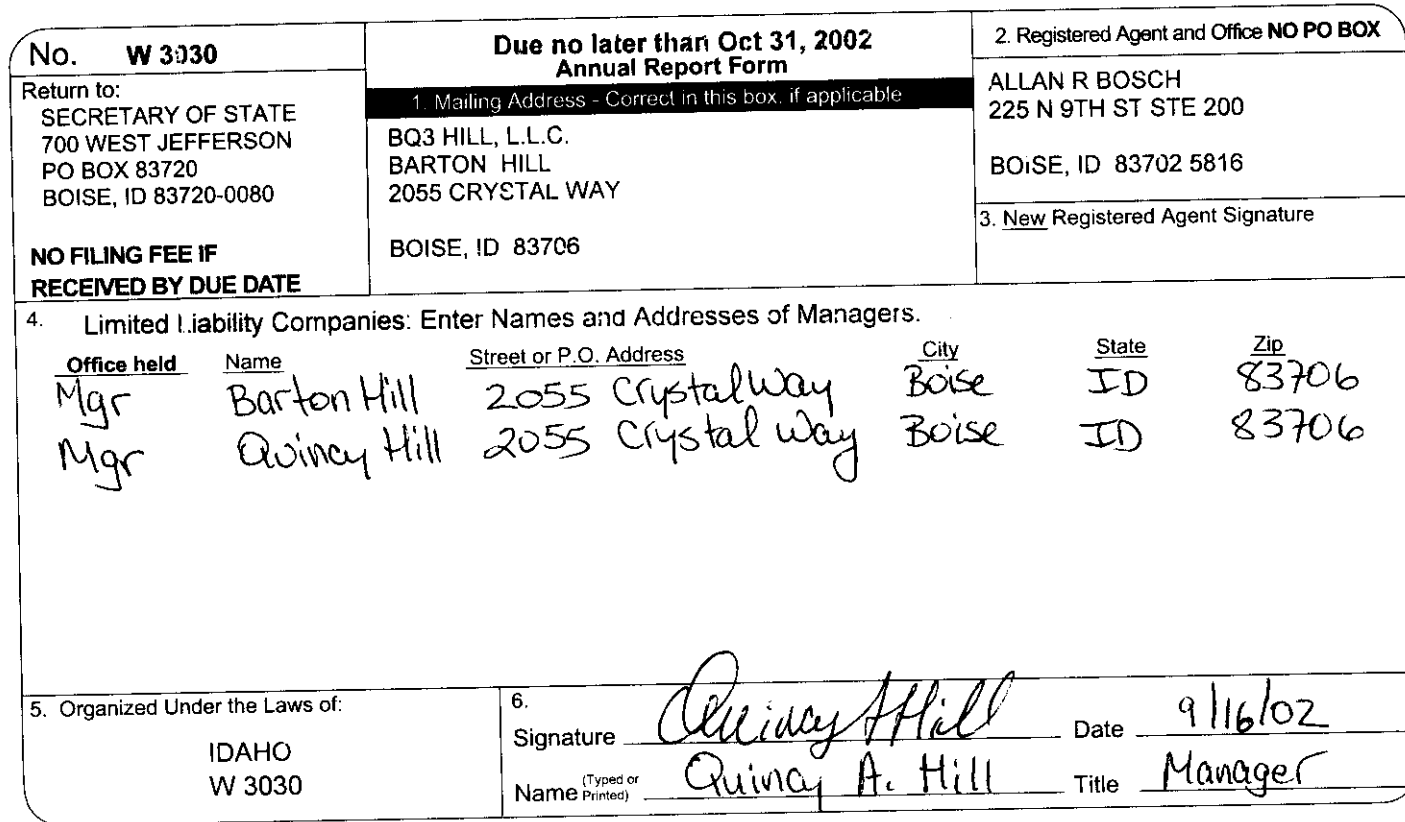 No. W 3030
Return to:
SECRETARY OF STATE
700 WEST JEFFERSON
PO BOX 83720
BOISE, ID 83720-0080
NO FILING FEE IF
RECEIVED BY DUE DATE
Due no later than Oct 31, 2002
Annual Report Form
1. Mailing Address - Correct in this box, if applicable
BQ3 HILL, L.L.C.
BARTON HILL
2055 CRYSTAL WAY
BOISE, ID 83706
2. Registered Agent and Office NO PO BOX
ALLAN R BOSCH
225 N 9TH ST STE 200
BOISE, ID 83702 5816
3. New Registered Agent Signature
4. Limited Liability Companies: Enter Names and Addresses of Managers.
Office held Name Street or P.O. Address City State Zip
Mgr Barton Hill 2055 Crystal Way Boise ID 83706
Mgr Quincy Hill 2055 Crystal Way Boise ID 83706
5. Organized Under the Laws of:
IDAHO
W 3030
6.
Signature Quincy A Hill Date 9/16/02
Name (Typed or Printed) Quincy A. Hill Title Manager